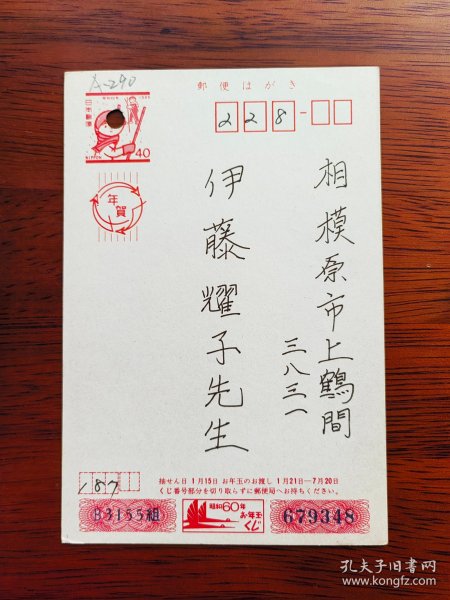 A-290
郵便はがき
日本郵便
NIPPON
40
228-
年賀
相模原市上鶴間
三八三一
伊藤耀子先生
抽せん日 1月15日 お年玉のお渡し 1月21日−7月20日
くじ番号部分を切り取らずに郵便局へお持ちください。
187
B3155組
昭和60年
お年玉
679348
孔夫子旧书网
www.kongfz.com